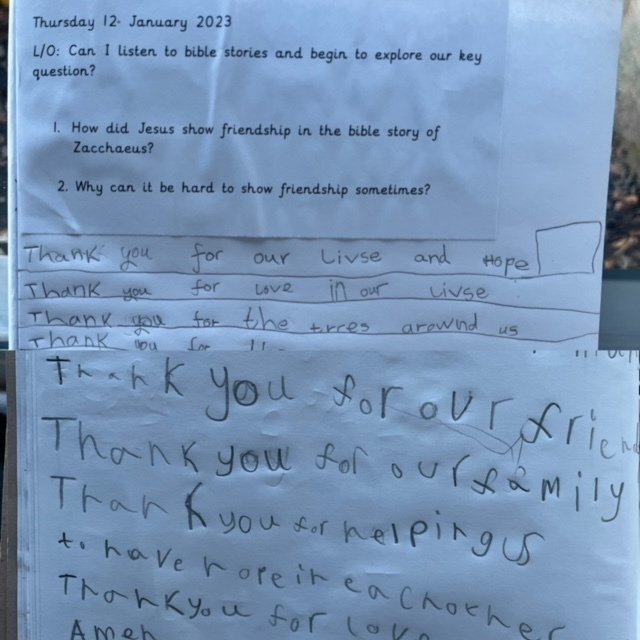 Thursday 12th January 2023
L/O: Can I listen to bible stories and begin to explore our key
question?
1. How did Jesus show friendship in the bible story of
Zacchaeus?
2. Why can it be hard to show friendship sometimes?
Thank you for our Livse and Hope
Thank you for Love in our Livse
Thank you for the trees arewnd us
Thank you for
Thank you for our frien
Thank you for our family
Thank you for helping us
to have hope in eachother
Thank you for love
Amen